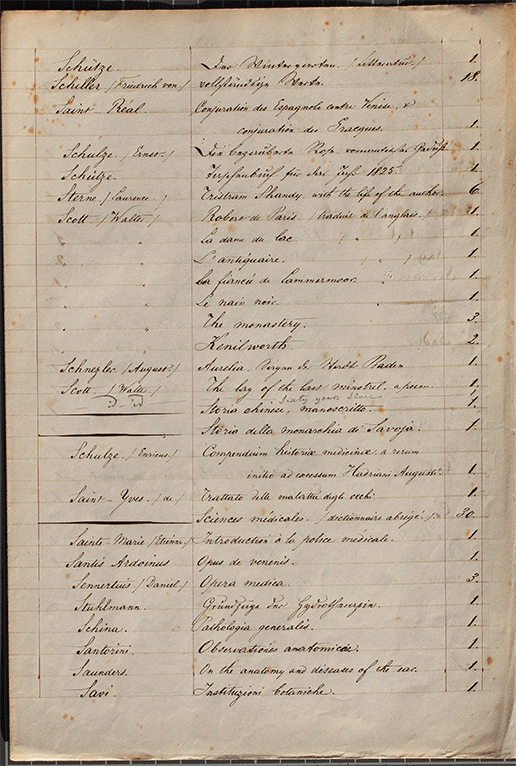 Schütze. Der Wintergarten. / 1.
Schiller / Friedrich von / vollständige 18.
Saint Réal. Conjuration des Espagnols contre Venise, &
conjuration des Gracques. 1.
Schulze / Ernst / Die bezauberte Rose, 1.
Schütze. für das Jahr 1825. 1.
Sterne / Laurence / Tristram Shandy with the life of the author. 6.
Scott / Walter / Robert de Paris / traduit de l'anglais / 1.
" La dame du lac. / " / 1.
" L'antiquaire. / " / 1.
" La fiancée de Lammermoor. " 1.
" Le nain noir. 1.
" The monastery. 3.
" Kenilworth. 2.
Schnezler / August / Aurelia, Baden 1.
Scott / Walter / The lay of the last minstrel, a poem. 1.
sixty years since
Storia chinese, manoscritto. 1.
Storia della monarchia di Savoja. 1.
Schulze / Enricus / Compendium historiæ medicinæ a rerum
initio ad excessum Hadriani Augusti. 1.
Saint-Yves / de / Trattato delle malattie degli occhi. 1.
Sciences médicales. / dictionnaire abrégé / 30.
Sainte-Marie / Etienne / Introduction à la police médicale. 1.
Santis Ardoinus Opus de venenis. 1.
Sennertius / Daniel / Opera medica. 3.
Stuhlmann. Grundzüge der 1.
Schina. Pathologia generalis. 1.
Santorini. Observationes anatomicæ. 1.
Saunders. On the anatomy and diseases of the ear. 1.
Savi. Instituzioni botaniche. 1.